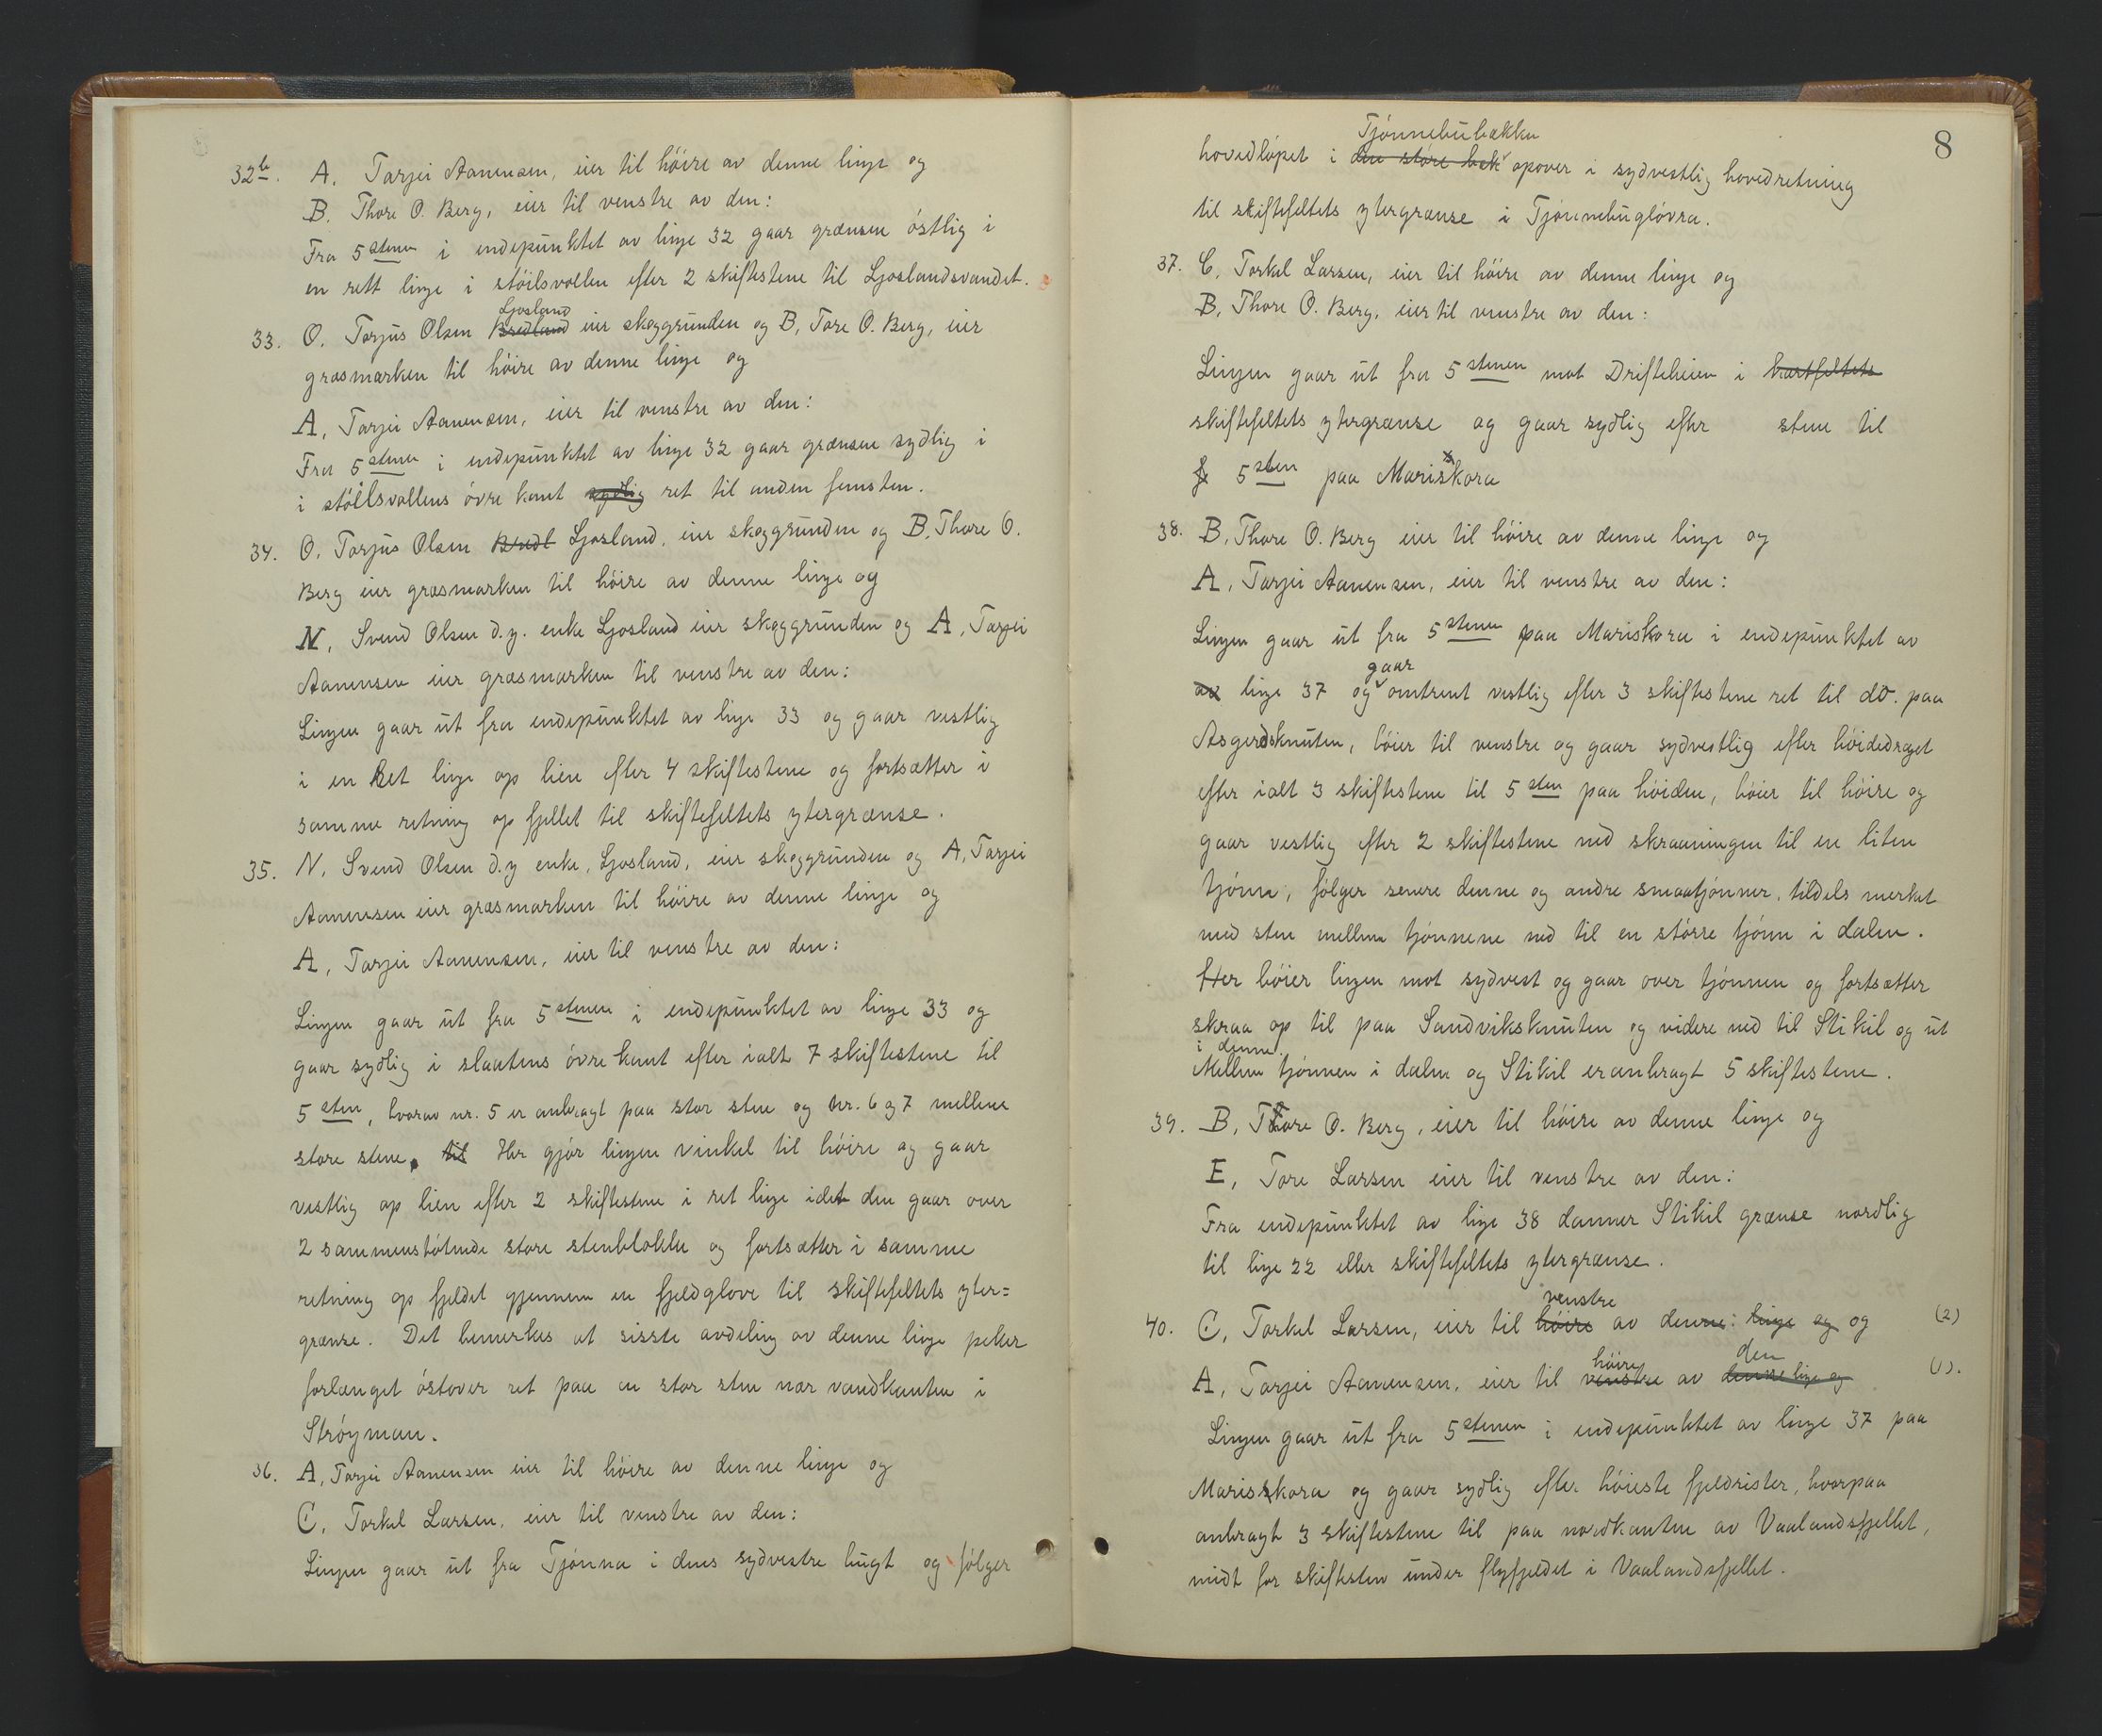 32b. A. Tarjei Aanensen, eier til höire av denne linje og
B. Thore O. Berg, eier til venstre av den:
Fra 5 stenen i endepunktet av linje 32 gaar grænsen östlig i
en rett linje i stöilsvollen efter 2 skiftestene til Ljoslandsvandet.
Ljosland
33. O. Torjus Olsen Bredland eier skoggrunden og B, Tore O. Berg, eier
græsmarken til höire av denne linje og
A, Tarjei Aanensen, eier til venstre av den:
Fra 5 stenen i endepunktet av linje 32 gaar grænsen sydlig i
i stöilsvollens övre kant sydlig ret til anden femsten.
34. O. Torjus Olsen Bredl Ljosland, eier skoggrunden og B. Thore O.
Berg eier græsmarken til höire av denne linje og
N, Svend Olsen d.y. enke Ljosland eier skoggrunden og A, Tarjei
Aanensen eier græsmarken til venstre av den:
Linjen gaar ut fra endepunktet av linje 33 og gaar vestlig
i en ret linje op lien efter 4 skiftestene og fortsætter i
samme retning op fjellet til skiftefeltets ytergrænse.
35. N, Svend Olsen d.y enke, Ljosland, eier skoggrunden og A, Tarjei
Aanensen eier græsmarken til höire av denne linje og
A, Tarjei Aanensen, eier til venstre av den:
Linjen gaar ut fra 5 stenen i endepunktet av linje 33 og
gaar sydlig i slaatens övre kant efter ialt 7 skiftestene til
5 sten, hvorav nr. 5 er anbragt paa stor sten og nr. 6 og 7 mellem
store stene. til Her gjör linjen vinkel til höire og gaar
vestlig op lien efter 2 skiftestene i ret linje idet den gaar over
2 sammenstötende store stenblokke og fortsætter i samme
retning op fjeldet gjennem en fjeldglove til skiftefeltets yter=
grænse. Det bemerkes at sisste avdeling av denne linje peker
forlænget östover ret paa en stor sten nær vandkanten i
Ströyman.
36. A, Tarjei Aanensen eier til höire av denne linje og
C, Torkel Larsen, eier til venstre av den:
Linjen gaar ut fra Tjönna i dens sydvestre bugt og fölger
8
Tjönnebubækken
hovedlöpet i den store bæk opover i sydvestlig hovedretning
til skiftefeltets ytergrænse i Tjönnebuglövra.
37. C, Torkel Larsen, eier til höire av denne linje og
B, Thore O. Berg, eier til venstre av den:
Linjen gaar ut fra 5 stenen mot Drifteheien i kartfeltets
skiftefeltets ytergrænse og gaar sydlig efter stene til
5 sten paa Marisskora
38. B, Thore O. Berg eier til höire av denne linje og
A, Tarjei Aanensen, eier til venstre av den:
Linjen gaar ut fra 5 stenen paa Mariskora i endepunktet av
gaar
av linje 37 og omtrent vestlig efter 3 skiftestene ret til do. paa
Asgerdsknuten, böier til venstre og gaar sydvestlig efter höidedraget
efter ialt 3 skiftestene til 5 sten paa höiden, böier til höire og
gaar vestlig efter 2 skiftestene ned skraaningen til en liten
tjönn, fölger senere denne og andre smaatjönner, tildels merket
med sten mellem tjönnene ned til en större tjönn i dalen.
Her böier linjen mot sydvest og gaar over tjönnen og fortsætter
skraa op til paa Sandviksknuten og videre ned til Stikil og ut
i denne.
Mellem tjönnen i dalen og Stikil er anbragt 5 skiftestene.
39. B, Thore O. Berg, eier til höire av denne linje og
E, Tore Larsen eier til venstre av den:
Fra endepunktet av linje 38 danner Stikil grænse nordlig
til linje 22 eller skiftefeltets ytergrænse.
venstre
40. C, Torkel Larsen, eier til höire av denne: linje og og (2)
höire den
A, Tarjei Aanensen, eier til venstre av denne linje og (1).
Linjen gaar ut fra 5 stenen i endepunktet av linje 37 paa
Marisskora og gaar sydlig efter höieste fjeldrister, hvorpaa
anbragt 3 skiftestene til paa nordkanten av Vaalandsfjellet,
midt for skiftesten under flyfjeldet i Vaalandsfjellet.